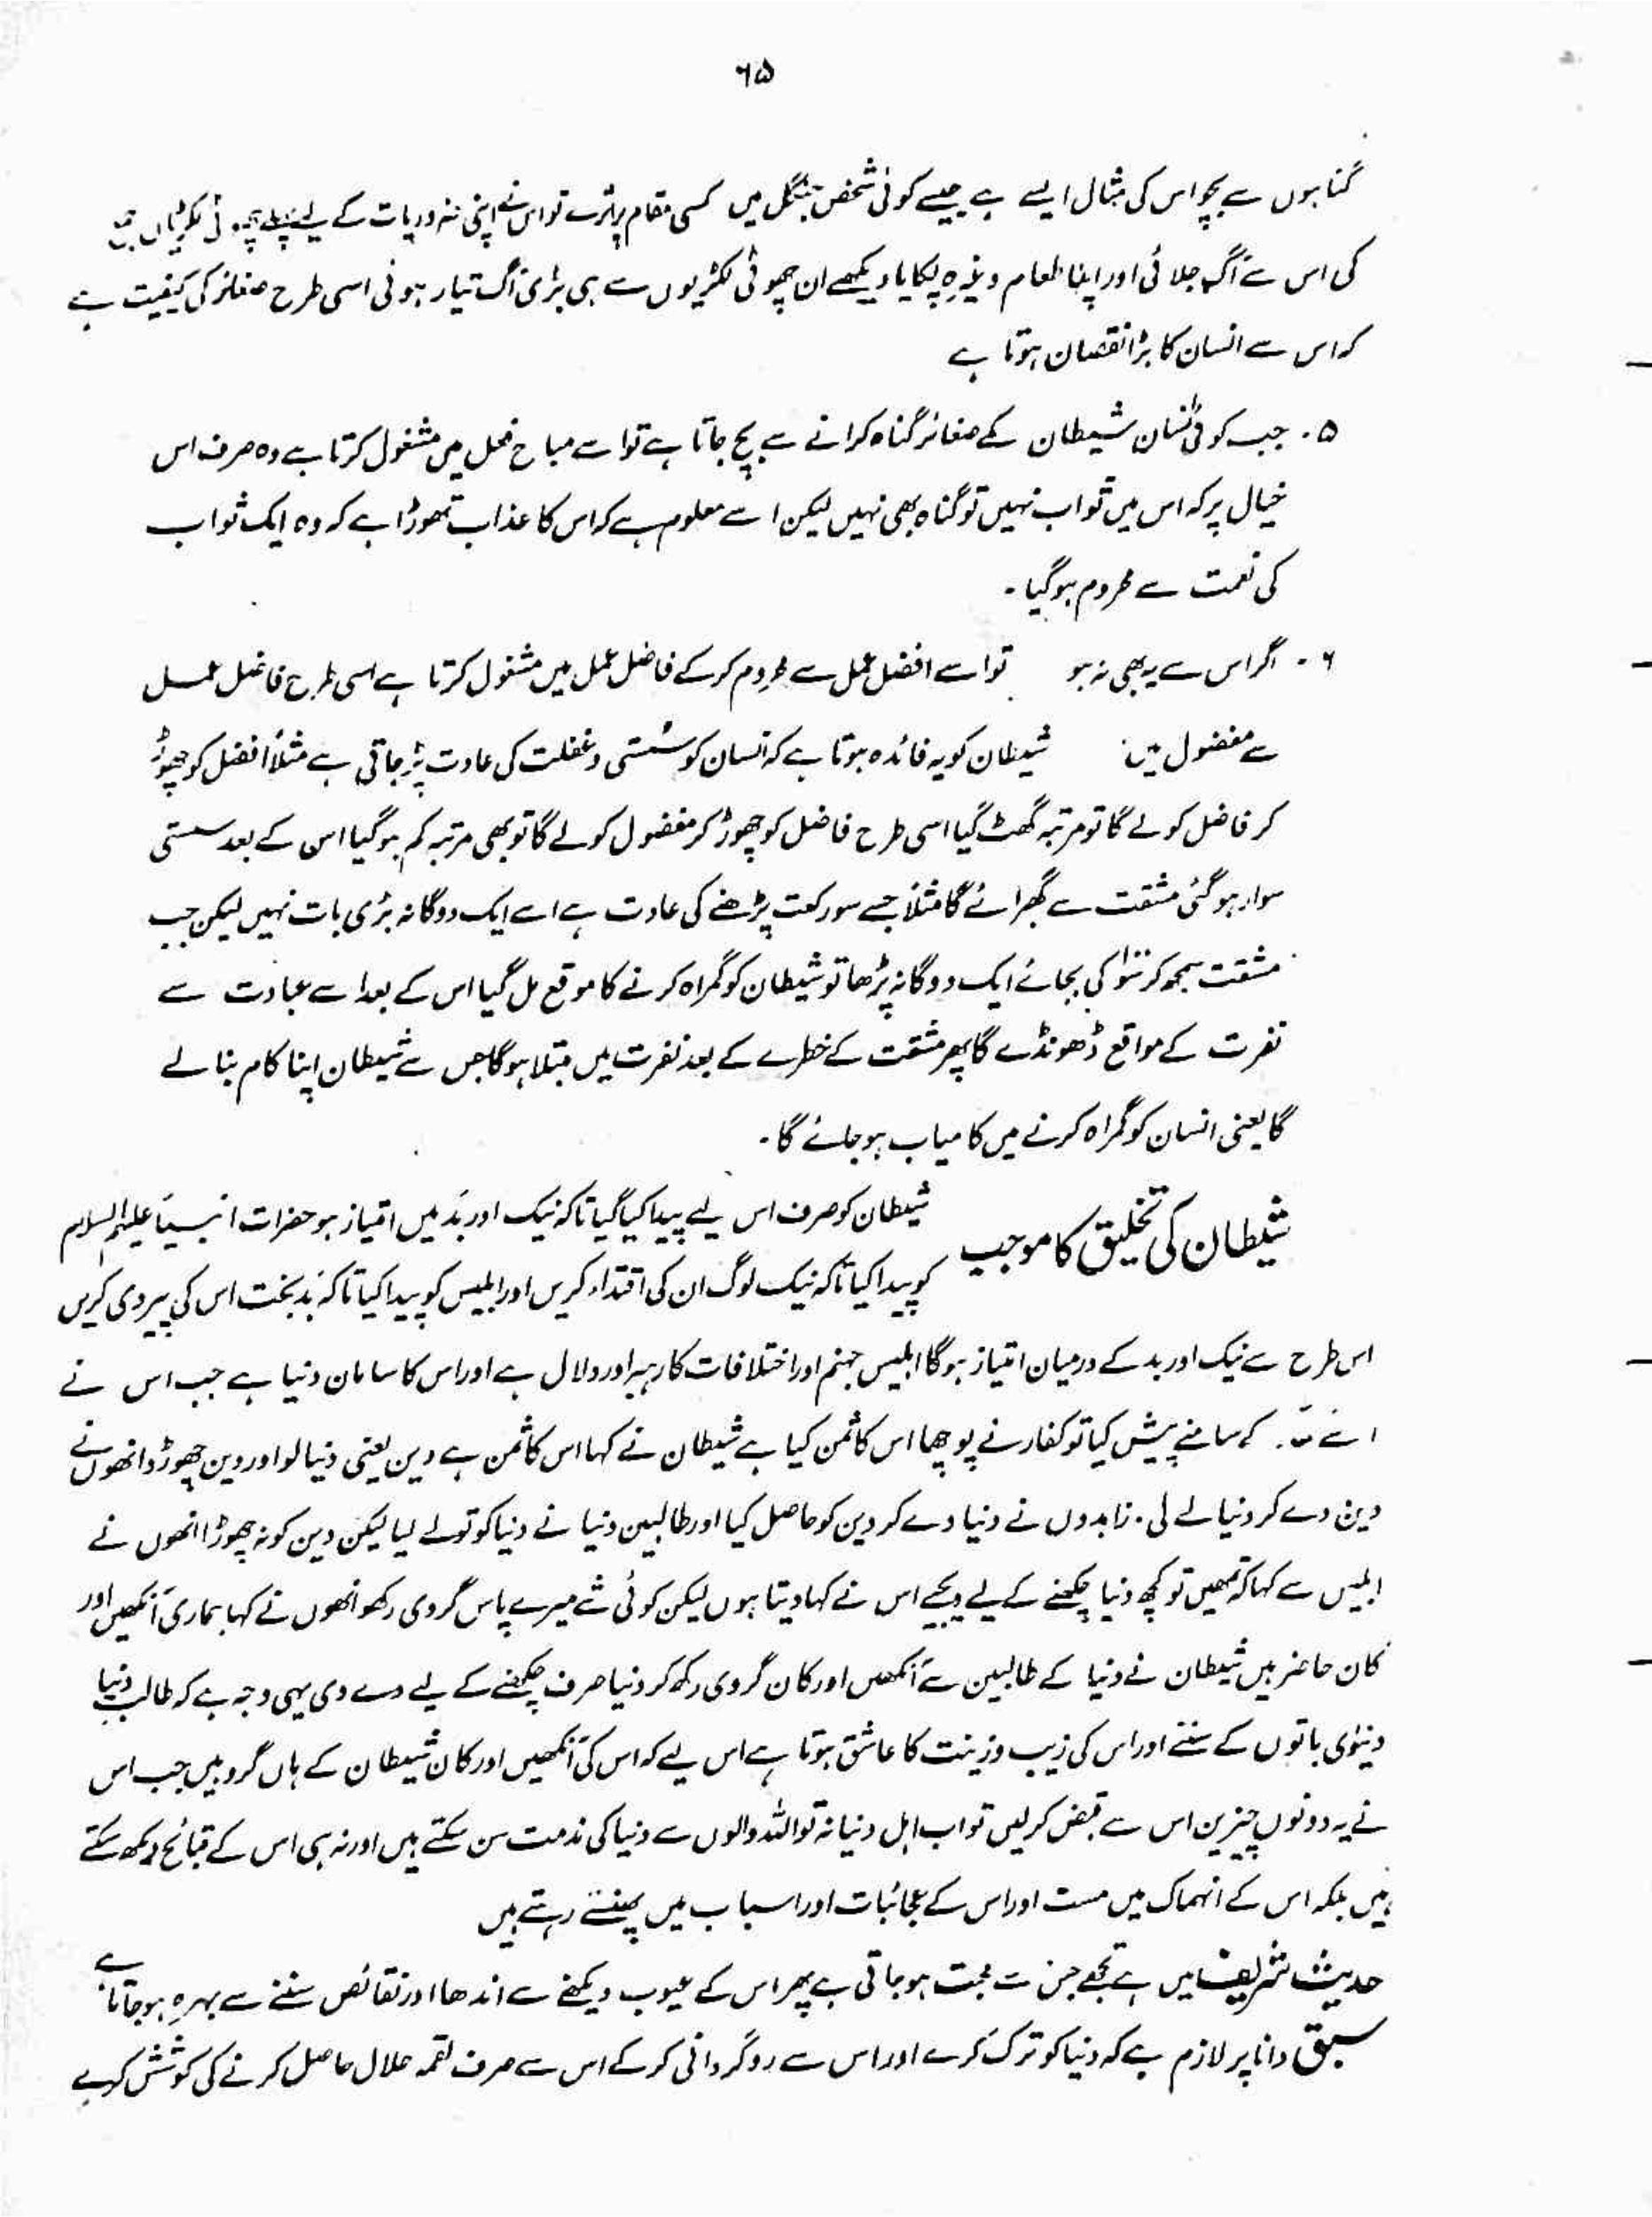 ۶۵
گناہوں سے بچو اس کی مثال ایسے ہے جیسے کوئی شخص جنگل میں کسی مقام پر اترے تو اس نے اپنی ضروریات کے لیے پہلے چھوٹی لکڑیاں جمع
کی اس سے آگ جلائی اور اپنا طعام وغیرہ پکایا دیکھے ان چھوٹی لکڑیوں سے ہی بڑی آگ تیار ہوئی اسی طرح صغائر کی کیفیت ہے
کہ اس سے انسان کا بڑا نقصان ہوتا ہے
۵۔ جب کوئی انسان شیطان کے صغائر گناہ کرانے سے بچ جاتا ہے تو اسے مباح فعل میں مشغول کرتا ہے وہ صرف اس
خیال پر کہ اس میں ثواب نہیں تو گناہ بھی نہیں لیکن اسے معلوم ہے کہ اس کا عذاب تھوڑا ہے کہ وہ ایک ثواب
کی نعمت سے محروم ہوگیا۔
۶۔ اگر اس سے یہ بھی نہ ہو تو اسے افضل عمل سے محروم کر کے فاضل عمل میں مشغول کرتا ہے اسی طرح فاضل عمل
سے مفضول میں شیطان کو یہ فائدہ ہوتا ہے کہ انسان کو سُستی و غفلت کی عادت پڑ جاتی ہے مثلاً افضل کو چھوڑ
کر فاضل کو لے گا تو مرتبہ گھٹ گیا اسی طرح فاضل کو چھوڑ کر مفضول کو لے گا تو بھی مرتبہ کم ہوگیا اس کے بعد سستی
سوار ہوگئی مشقت سے گھبرائے گا مثلاً جسے سو رکعت پڑھنے کی عادت ہے اسے ایک دوگانہ بڑی بات نہیں لیکن جب
مشقت سمجھ کر سَو کی بجائے ایک دوگانہ پڑھا تو شیطان کو گمراہ کرنے کا موقع مل گیا اس کے بعد اسے عبادت سے
نفرت کے مواقع ڈھونڈے گا پھر مشقت کے خطرے کے بعد نفرت میں مبتلا ہوگا جس سے شیطان اپنا کام بنا لے
گا یعنی انسان کو گمراہ کرنے میں کامیاب ہو جائے گا۔
شیطان کی تخلیق کا موجب
شیطان کو صرف اس لیے پیدا کیا گیا تاکہ نیک اور بد میں امتیاز ہو حضرات انبیاء علیہم السلام
کو پیدا کیا تاکہ نیک لوگ ان کی اقتداء کریں اور ابلیس کو پیدا کیا تاکہ بد بخت اس کی پیروی کریں
اس طرح سے نیک اور بد کے درمیان امتیاز ہوگا ابلیس جہنم اور اختلافات کا رہبر اور دلال ہے اور اس کا سامان دنیا ہے جب اس نے
کے سامنے پیش کیا تو کفار نے پوچھا اس کا ثمن کیا ہے شیطان نے کہا اس کا ثمن ہے دین یعنی دنیا لو اور دین چھوڑ دو انھوں نے
دین دے کر دنیا لے لی۔ زاہدوں نے دنیا دے کر دین کو حاصل کیا اور طالبین دنیا نے دنیا کو تو لے لیا لیکن دین کو نہ چھوڑا انھوں نے
ابلیس سے کہا کہ تمھیں تو کچھ دنیا چکھنے کے لیے دیجیے اس نے کہا دیتا ہوں لیکن کوئی شے میرے پاس گروی رکھو انھوں نے کہا ہماری آنکھیں اور
کان حاضر ہیں شیطان نے دنیا کے طالبین سے آنکھیں اور کان گروی رکھ کر دنیا صرف چکھنے کے لیے دے دی یہی وجہ ہے کہ طالب دنیا
دنیوی باتوں کے سننے اور اس کی زیب و زینت کا عاشق ہوتا ہے اس لیے کہ اس کی آنکھیں اور کان شیطان کے ہاں گرو ہیں جب اس
نے یہ دونوں چیزیں اس سے قبض کر لیں تو اب اہل دنیا نہ تو اللہ والوں سے دنیا کی مذمت سن سکتے ہیں اور نہ ہی اس کے قبائح دیکھ سکتے
ہیں بلکہ اس کے انہماک میں مست اور اس کے عجائبات اور اسباب میں پھنسے رہتے ہیں
حدیث شریف میں ہے تجھے جس سے محبت ہو جاتی ہے پھر اس کے عیوب دیکھنے سے اندھا اور نقائص سننے سے بہرہ ہو جاتا ہے
سبق دانا پر لازم ہے کہ دنیا کو ترک کرے اور اس سے روگردانی کر کے اس سے صرف لقمہ حلال حاصل کرنے کی کوشش کرے